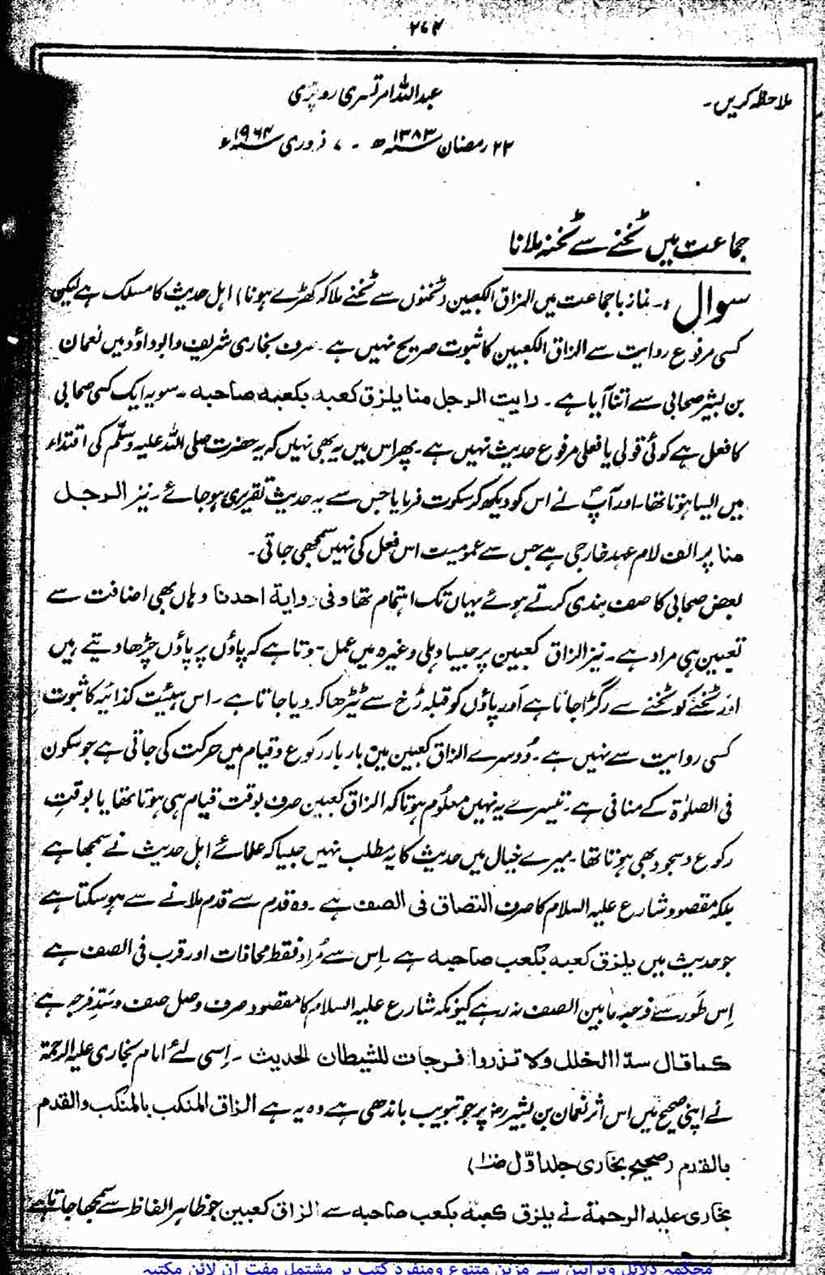 ۲۶۴
ملاحظہ کریں۔
عبداللہ امرتسری روپڑی
۲۲ رمضان ۱۳۸۳ھ ۔ ۷ فروری ۱۹۶۴ء
جماعت میں ٹخنے سے ٹخنہ ملانا
سوال :۔ نماز باجماعت میں الزاق الکعبین (ٹخنوں سے ٹخنے ملا کر کھڑے ہونا) اہل حدیث کا مسلک ہے لیکن
کسی مرفوع روایت سے الزاق الکعبین کا ثبوت صریح نہیں ہے۔ صرف بخاری شریف و ابوداؤد میں نعمان
بن بشیر صحابی سے اتنا آیا ہے۔ رایت الرجل منا یلزق کعبہ بکعبہ صاحبہ ۔ سو یہ ایک کسی صحابی
کا فعل ہے کوئی قولی یا فعلی مرفوع حدیث نہیں ہے۔ پھر اس میں یہ بھی نہیں کہ یہ حضرت صلی اللہ علیہ وسلم کی اقتداء
میں ایسا ہوتا تھا۔ اور آپؐ نے اس کو دیکھ کر سکوت فرمایا جس سے یہ حدیث تقریری ہو جائے ۔ نیز الرجل
منا پر الف لام عہد خارجی ہے جس سے عمومیت اس فعل کی نہیں سمجھی جاتی ۔
بعض صحابی کا صف بندی کرتے ہوئے یہاں تک اہتمام تھا و فی روایۃ احدنا وہاں بھی اضافت سے
تعیین ہی مراد ہے۔ نیز الزاق کعبین پر جیسا دہلی وغیرہ میں عمل ہوتا ہے کہ پاؤں پر پاؤں چڑھا دیتے ہیں
اور ٹخنے کو ٹخنے سے رگڑا جاتا ہے اور پاؤں کو قبلہ رُخ سے ٹیڑھا کر دیا جاتا ہے۔ اس ہیئت کذائیہ کا ثبوت
کسی روایت سے نہیں ہے۔ دُوسرے الزاق کعبین میں بار بار رکوع و قیام میں حرکت کی جاتی ہے جو سکون
فی الصلوٰۃ کے منافی ہے۔ تیسرے یہ نہیں معلُوم ہوتا کہ الزاق کعبین صرف بوقت قیام ہی ہوتا تھا یا بوقتِ
رکوع و سجود بھی ہوتا تھا۔ میرے خیال میں حدیث کا یہ مطلب نہیں جیسا کہ علمائے اہل حدیث نے سمجھا ہے
بلکہ مقصود شارع علیہ السلام کا صرف التصاق فی الصف ہے ۔ وہ قدم سے قدم ملانے سے ہو سکتا ہے
جو حدیث میں یلزق کعبہ بکعب صاحبہ ہے۔ اِس سے مُراد فقط محاذات اور قرب فی الصف ہے
اِس طَور سے فرجہ مابین الصف نہ رہے کیونکہ شارع علیہ السلام کا مقصود صرف وصل صف و سدِّ فرجہ ہے
کما قال سدّا الخلل ولا تذروا فرجات للشیطان الحدیث ۔ اِسی لئے امام بخاری علیہ الرحمۃ
نے اپنی صحیح میں اس اثر نعمان بن بشیرؓ پر جو تبویب باندھی ہے وہ یہ ہے الزاق المنکب بالمنکب والقدم
بالقدم (صحیح بخاری جلد اوّل صنا)
بخاری علیہ الرحمۃ نے یلزق کعبہ بکعب صاحبہ سے الزاق کعبین جو ظاہر الفاظ سے سمجھا جاتا ہے
محکمہ دلائل وبراہین سے مزین متنوع ومنفرد کتب پر مشتمل مفت آن لائن مکتبہ